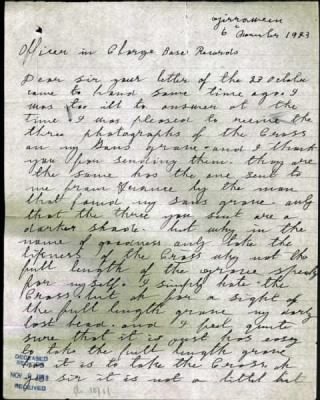 Girraween
6 November 1923
Officer in Charge Base Records
Dear sir your letter of the 23 October
came to hand some time ago. I
was too ill to answer at the
time. I was pleased to receive the
three photographs of the Cross
on my sons grave. and I thank
you for sending them. they are
the same has the one sent to
me from France by the man
that found my sons grave only
that the three you sent are a
darker shade. but why in the
name of goodness only take the
likeness of the Cross why not the
full length of the grave speak
for myself. I simply hate the
Cross. but oh for a sight of
the full length grave my darly
lost head. and I feel quite
sure that it is just has easy
to take the full length grave
has it is to take the Cross. oh
sir it is not a tittel but
DECEASED
NOV 1923
RECEIVED